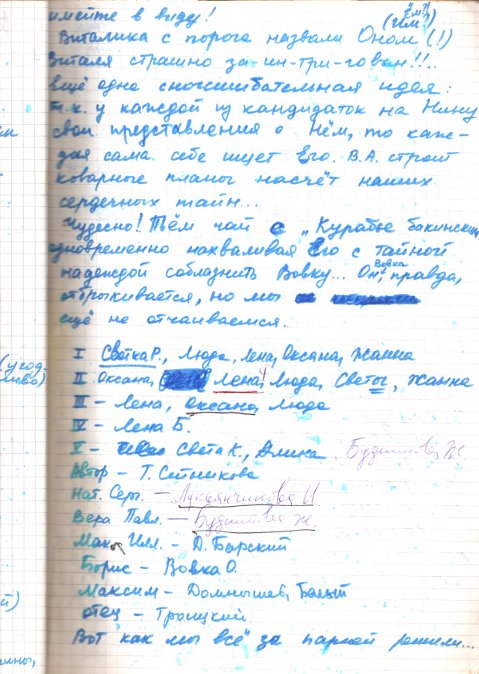 имейте в виду!
"Ем"?
(Им?)
Виталика с порога назвали Оном (!)
Виталя страшно за-ин-три-гован!!..
Ещё одна сногсшибательная идея:
т.к. у каждой из кандидаток на Нину
свои представления о Нём, то каж-
дая сама себе ищет Его. В.А. строит
коварные планы насчёт наших
сердечных тайн...
Чудесно! Пьём чай с „Курабье бакинским
одновременно нахваливая Его с тайной
надеждой соблазнить Вовку... Он, Вовка правда,
отбрыкивается, но мы
ещё не отчаиваемся.
(угод-
ливо)
I Светка Р., Люда, Лена, Оксана, Жанна
II Оксана, Лена, Люда, Светы, Жанна
III – Лена, Оксана, Люда
IV – Лена Б.
V – Света К., Алиса Будишевская Ж.
Автор – Т. Ситникова
Нат. Серг. – Лукьянчикова И
Вера Павл. – Ж.
Илл. – Д. Барский
Борис – Вовка О.
Максим – Домнышев,
отец – Троицкий
Вот как мы всё за партой решили...